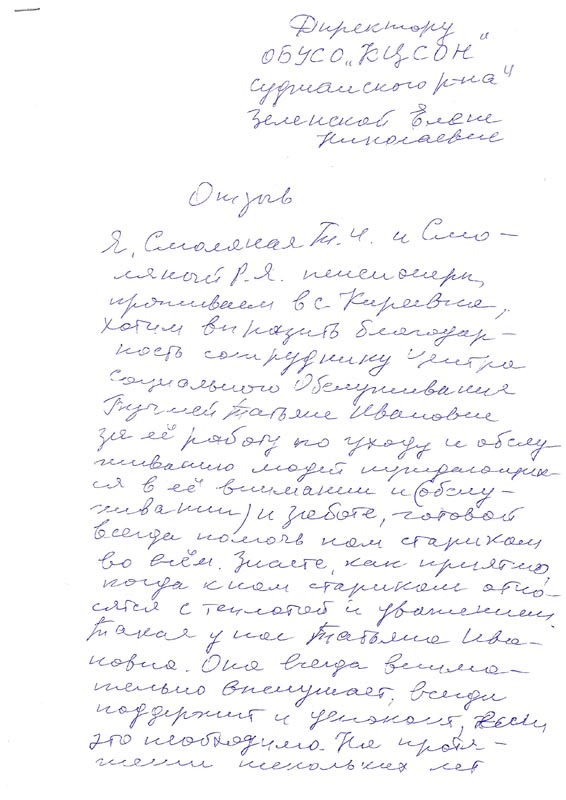 Директору
ОБУСО „КЦСОН"
Суджанского р-на"
Зеленской Елене
Николаевне
Отзыв
Я, Смоляная Т.Ч. и Смо-
ляный Р.Я. пенсионеры,
проживаем в с Киреевка,
хотим выразить благодар-
ность сотруднику Центра
Социального Обслуживания
Татьяне Ивановне
за её работу по уходу и обслу-
живанию людей нуждающих-
ся в её внимании и (обслу-
живании) и заботе, готовой
всегда помочь нам старикам
во всём. Знаете, как приятно,
когда к нам старикам отно-
сятся с теплотой и уважением.
Такая у нас Татьяна Ива-
новна. Она всегда внима-
тельно выслушает, всегда
поддержит и успокоит, если
это необходимо. На протя-
жении нескольких лет